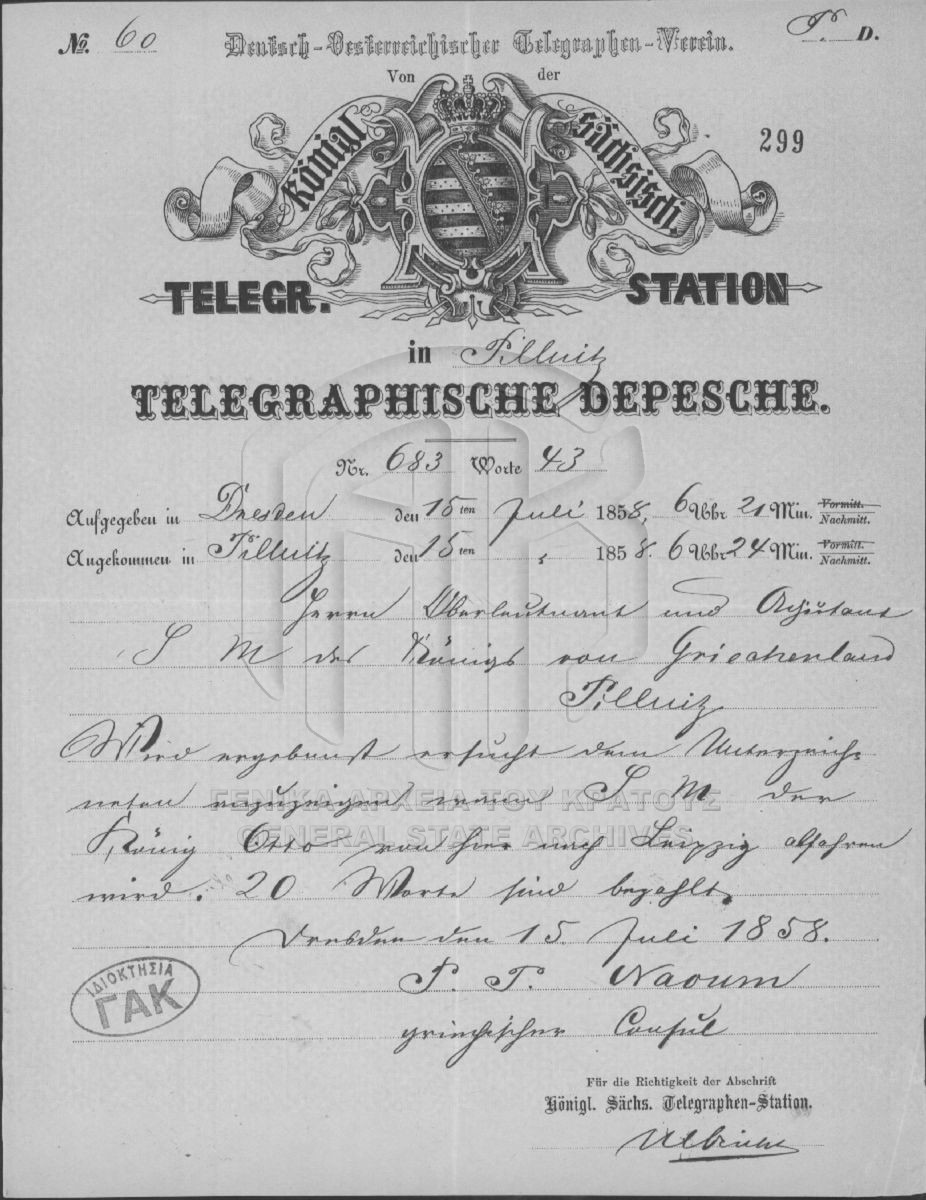 No. 60
Deutsch-Oesterreichischer Telegraphen-Verein.
D.
Von der
königl. sächsisch.
299
TELEGR. STATION
in Pillnitz
TELEGRAPHISCHE DEPESCHE.
Nr. 683 Worte 43
Aufgegeben in Dresden den 15ten Juli 1858, 6 Uhr 21 Min. Vormitt. Nachmitt.
Angekommen in Pillnitz den 15ten „ 1858. 6 Uhr 24 Min. Vormitt. Nachmitt.
Herrn Oberleutnant und Adjutant
S M des Königs von Griechenland
Pillnitz
Wird ergebenst ersucht dem Unterzeich-
neten anzuzeigen wann S M der
König Otto von hier nach Leipzig abfahren
wird. 20 Worte sind bezahlt.
Dresden den 15. Juli 1858.
P. P. Naoum
griechischer Consul
ΓΕΝΙΚΑ ΑΡΧΕΙΑ ΤΟΥ ΚΡΑΤΟΥΣ
GENERAL STATE ARCHIVES
ΙΔΙΟΚΤΗΣΙΑ
ΓΑΚ
Für die Richtigkeit der Abschrift
Königl. Sächs. Telegraphen-Station.